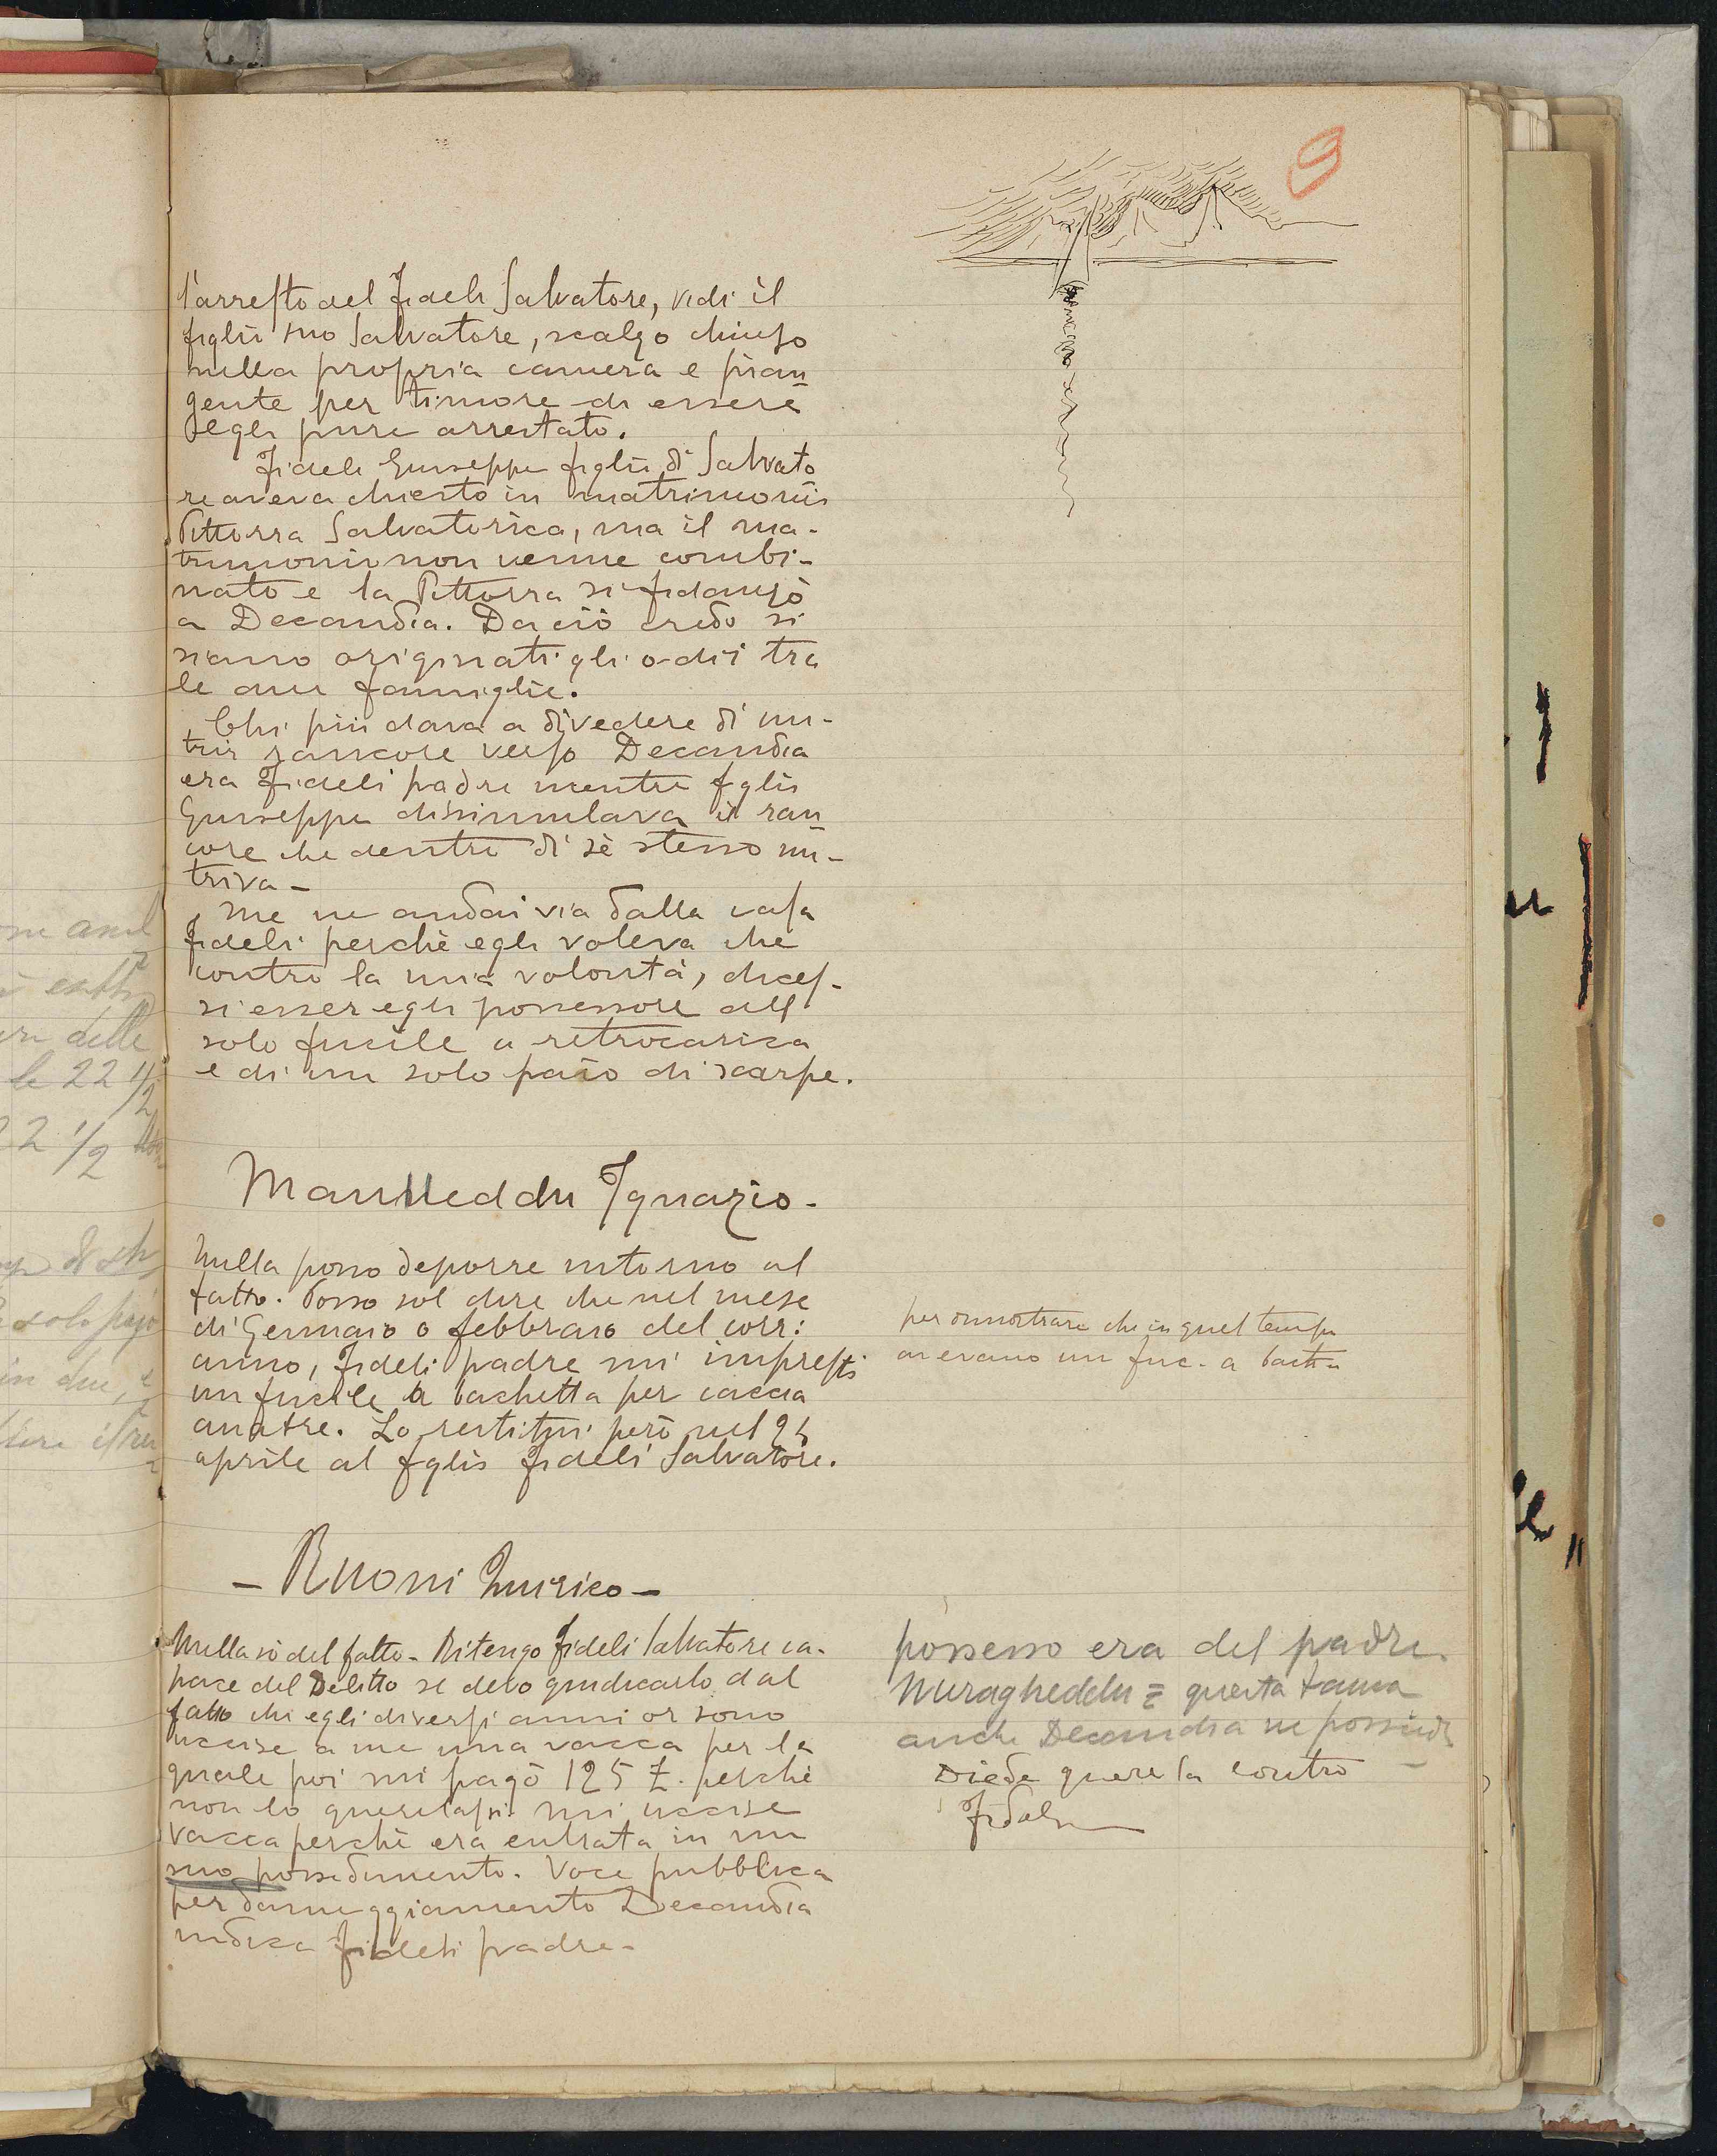 9
l'arresto del Fideli Salvatore, vidi il
figlio suo Salvatore, scalzo chiuso
nella propria camera e pian
gente per timore di essere
egli pure arrestato.
Fideli Giuseppe figlio di Salvato
re aveva chiesto in matrimonio
Pittorra Salvatorica, ma il ma-
trimonio non venne combi-
nato e la Pittorra si fidanzò
a Decandia. Da ciò credo si
siano originati gli odii tra
le due famiglie.
Chi più dava a divedere di nu-
trir rancore verso Decandia
era Fideli padre mentre figlio
Giuseppe dissimulava il ran
core che dentro di sè stesso nu-
triva -
Me ne andai via dalla casa
Fideli perchè egli voleva che
contro la mia volontà, dices-
si esser egli possessore del
solo fucile a retrocarica
e di un solo paio di scarpe.
Ignazio -
Nulla posso deporre intorno al
fatto. Posso sol dire che nel mese
di Gennaio o febbraio del corr:
anno, Fideli padre mi imprestò
un fucile a bachetta per caccia
anatre. Lo restitui però nel 25
aprile al figlio Fideli Salvatore.
per dimostrare che in quel tempo
avevano un fuc. a
- Ruoni Quirico -
Nulla sò del fatto - Ritengo Fideli Salvatore ca-
pace del Delitto se devo giudicarlo dal
fatto che egli diversi anni or sono
uccise a me una vacca per la
quale poi mi pagò 125 £. perchè
non lo querelassi. mi uccise
vacca perchè era entrata in un
suo possedimento. Voce pubblica
per danneggiamento Decandia
indica Fideli padre -
possesso era del padre.
Nuragheddu = questa tanca
anche Decandia ne possiede
Diede querela contro
Fideli